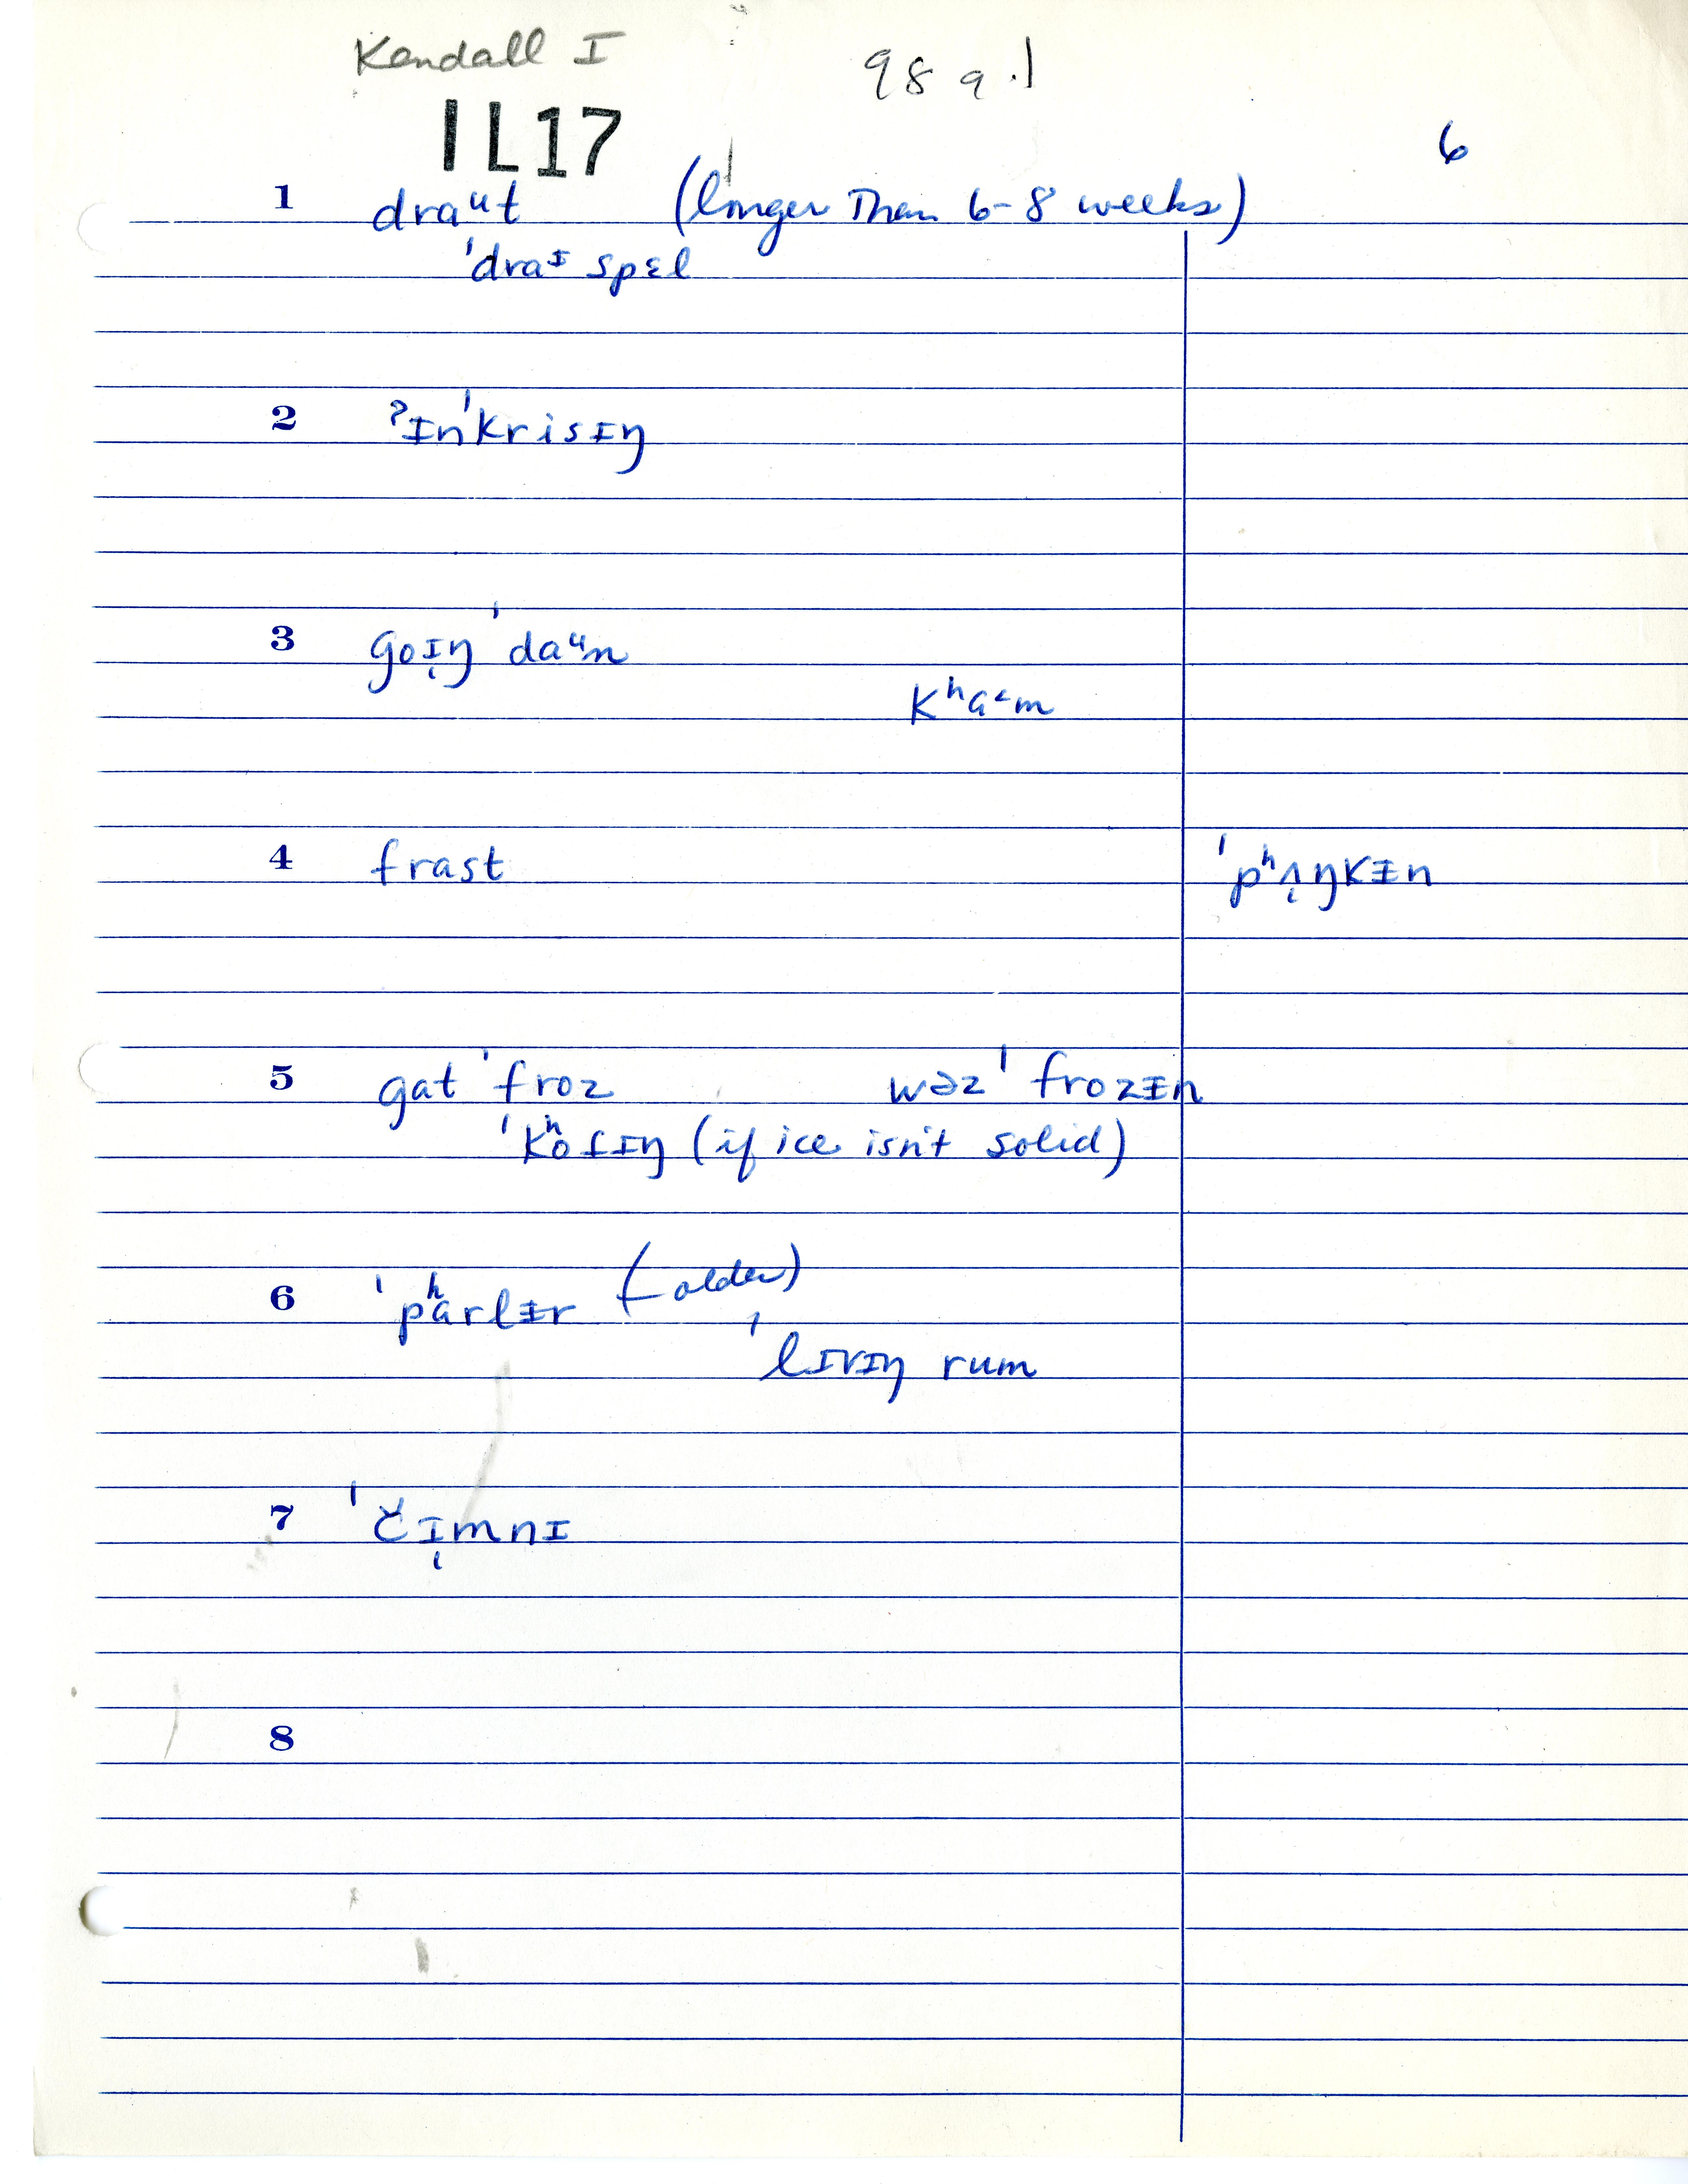 Kendall I 98 9.1
IL17
6
1 draᵘt (longer Than 6-8 weeks)
ˈdraᵻ spɛl
2 ˀɪnˈkrisɪŋ
3 goɪ̨ŋ ˈdaᵘn
kʰɑ˂m
4 frast ˈpʰʌ̨ŋkᵻn
5 gat ˈfroz wəz ˈfrozᵻn
ˈkʰofɪŋ (if ice isn't solid)
6 ˈpʰarlᵻr (-older)
ˈlɪvɪŋ rum
7 ˈčɪ̨mnɪ
8